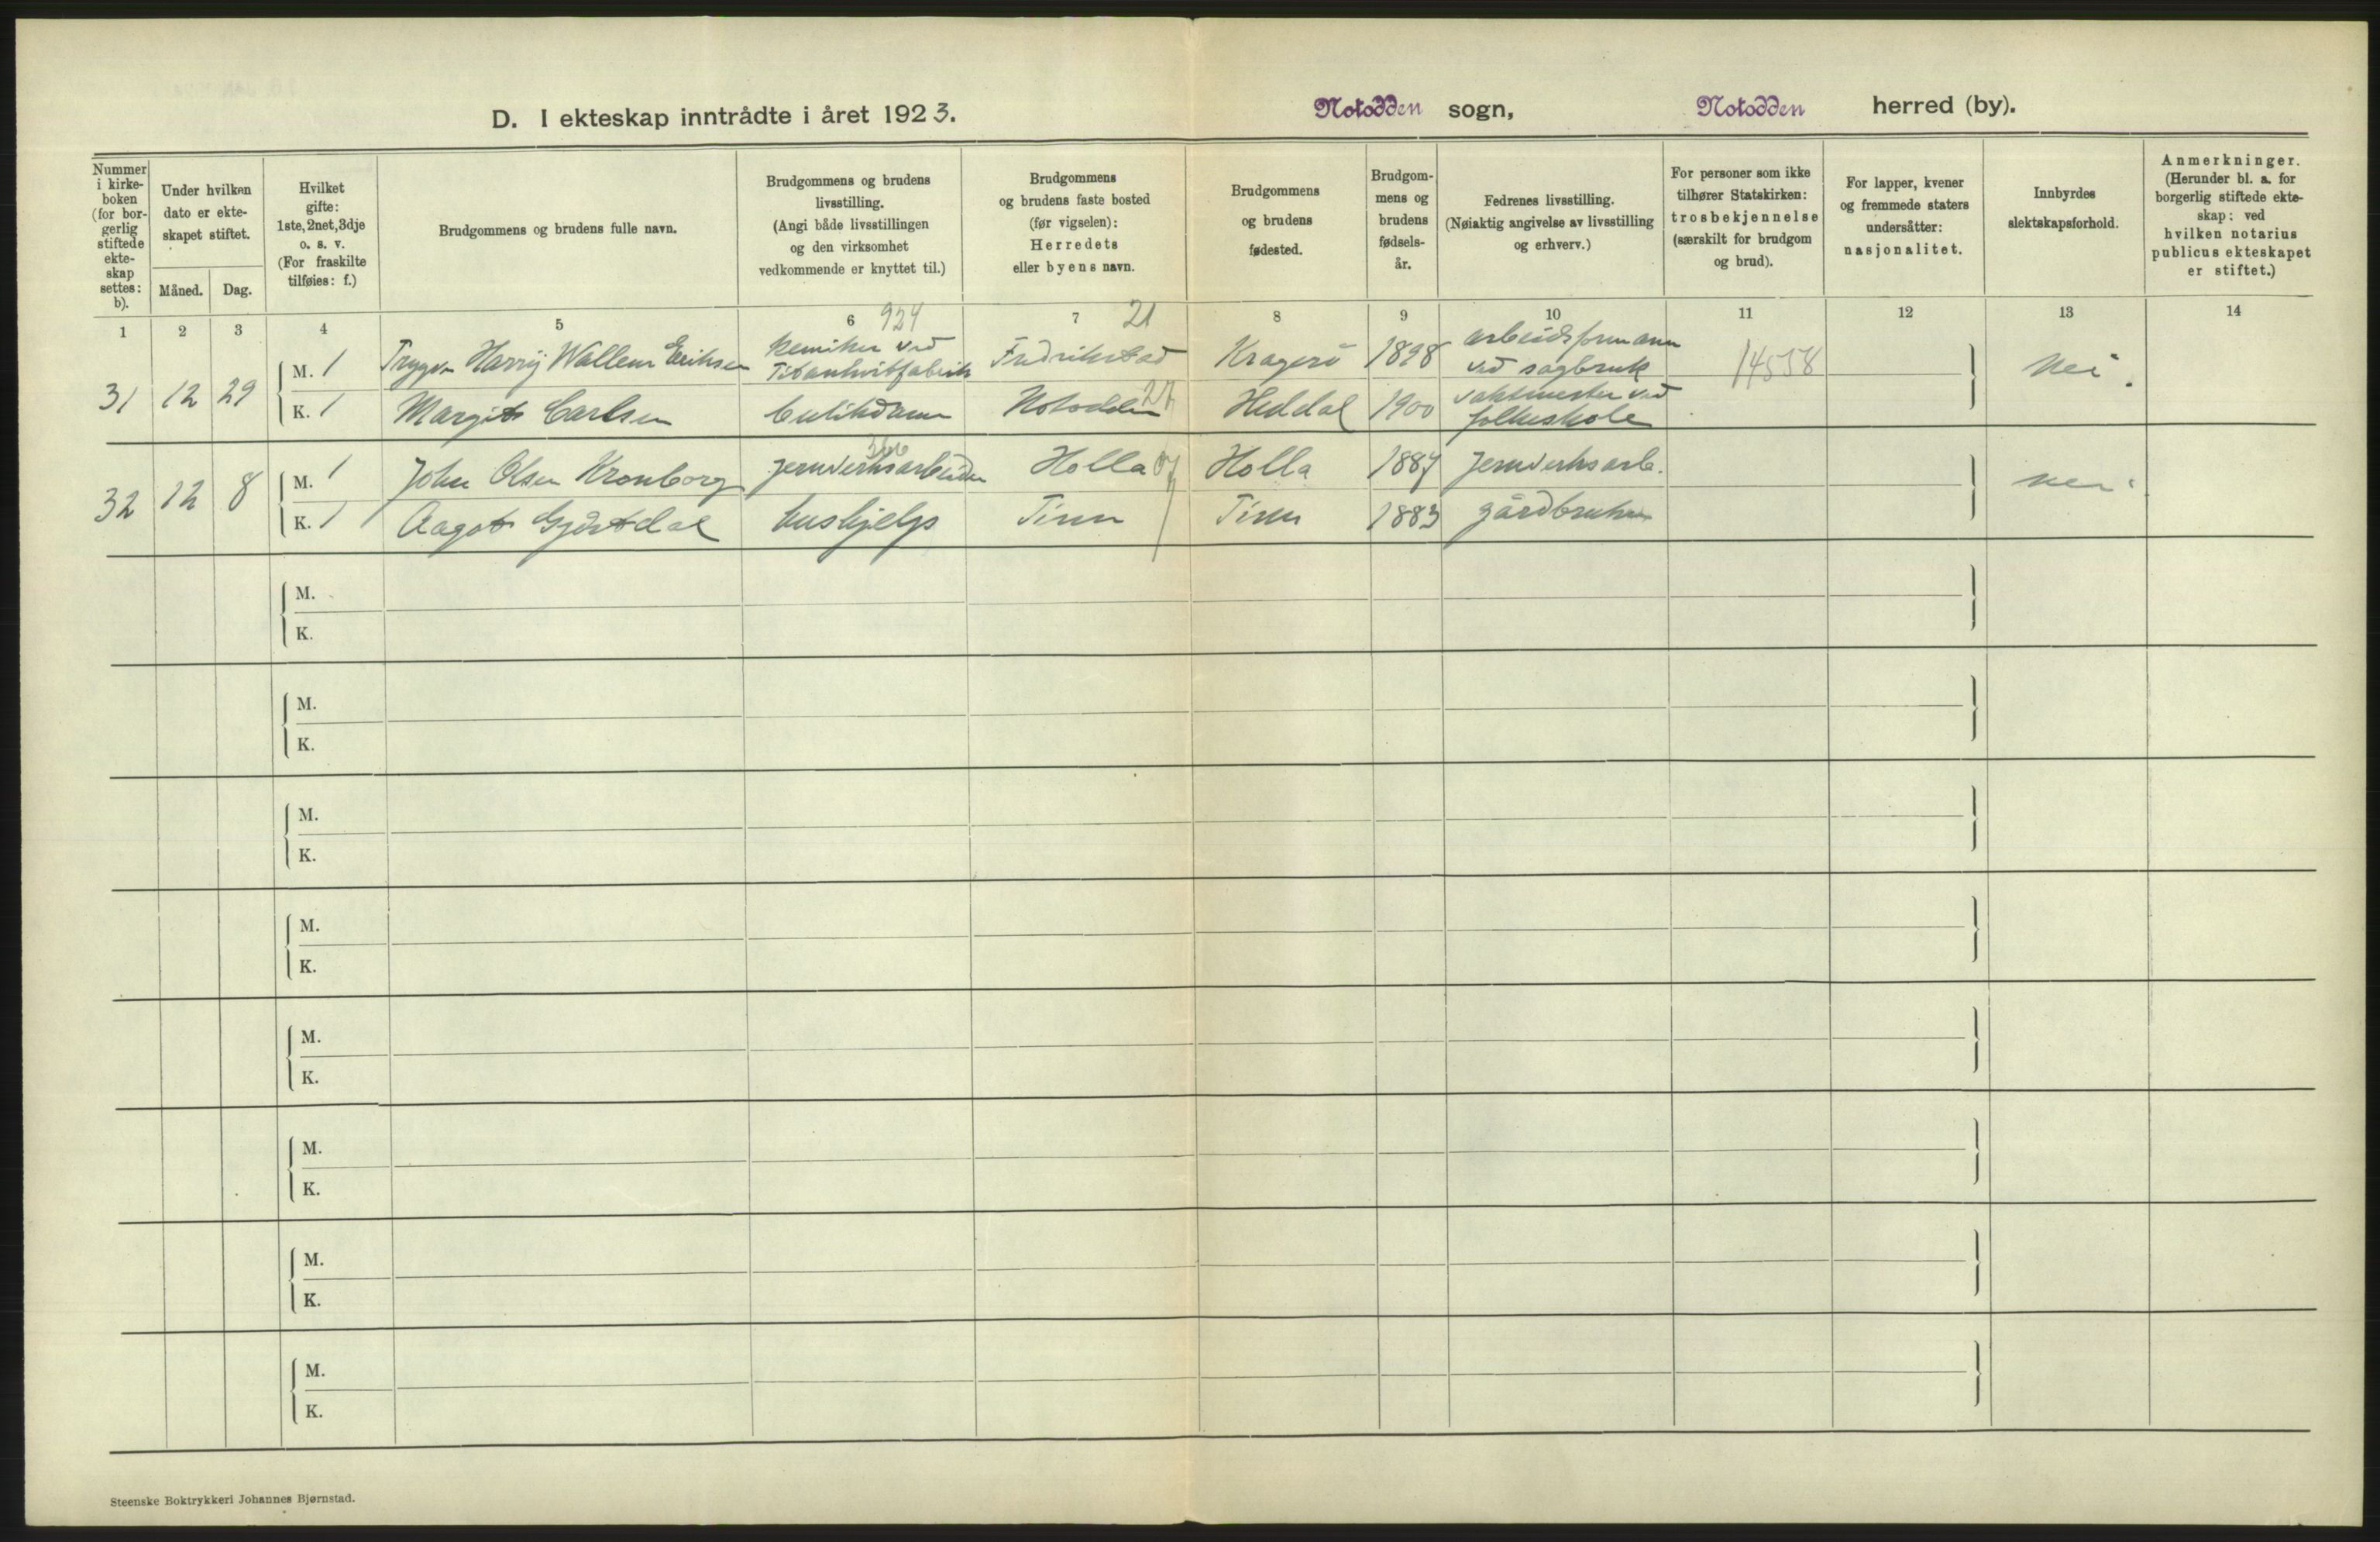 D. I ekteskap inntrådte i året 1923.
Notodden sogn, Notodden herred (by).
Nummer
i kirke-
boken
(for bor-
gerlig
stiftede
ekte-
skap
settes:
b).
Under hvilken
dato er ekte-
skapet stiftet.
Måned. Dag.
Hvilket
gifte:
1ste, 2net, 3dje
o. s. v.
(For fraskilte
tilføies: f.)
Brudgommens og brudens fulle navn.
Brudgommens og brudens
livsstilling.
(Angi både livsstillingen
og den virksomhet
vedkommende er knyttet til.)
Brudgommens
og brudens faste bosted
(før vigselen):
Herredets
eller byens navn.
Brudgommens
og brudens
fødested.
Brudgom-
mens og
brudens
fødsels-
år.
Fedrenes livsstilling.
(Nøiaktig angivelse av livsstilling
og erhverv.)
For personer som ikke
tilhører Statskirken:
trosbekjennelse
(særskilt for brudgom
og brud).
For lapper, kvener
og fremmede staters
undersåtter:
nasjonalitet.
Innbyrdes
slektskapsforhold.
Anmerkninger.
(Herunder bl. a. for
borgerlig stiftede ekte-
skap: ved
hvilken notarius
publicus ekteskapet
er stiftet.)
1 2 3 4 5 6 924 7 21 8 9 10 11 12 13 14
31 12 29
M. 1 Trygve Harry Wallem Eriksen
kemiker ved
Titanhvitfabrik
Fredrikstad Kragerö 1898
arbeidsformann
ved sagbruk
14558
nei.
K. 1 Margit Carlsen butikdame Notodden 27 Heddal 1900
vaktmester ved
folkeskole
32 12 8
M. 1 John Olsen Kronborg jernverksarbeider Holla 07 Holla 1887 Jernverksarb.
nei
K. 1 Aagot Gjöstdal hushjelp Tinn Tinn 1883 gårdbruker
M.
K.
M.
K.
M.
K.
M.
K.
M.
K.
M.
K.
M.
K.
M.
K.
Steenske Boktrykkeri Johannes Bjørnstad.